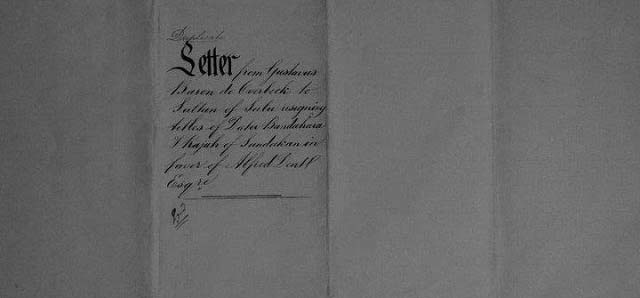 Duplicate
Letter from Gustavus
Baron de Overbeck to
Sultan of Sulu resigning
titles of Datu Bandahara
& Rajah of Sandakan in
favor of Alfred Dent
Esqre